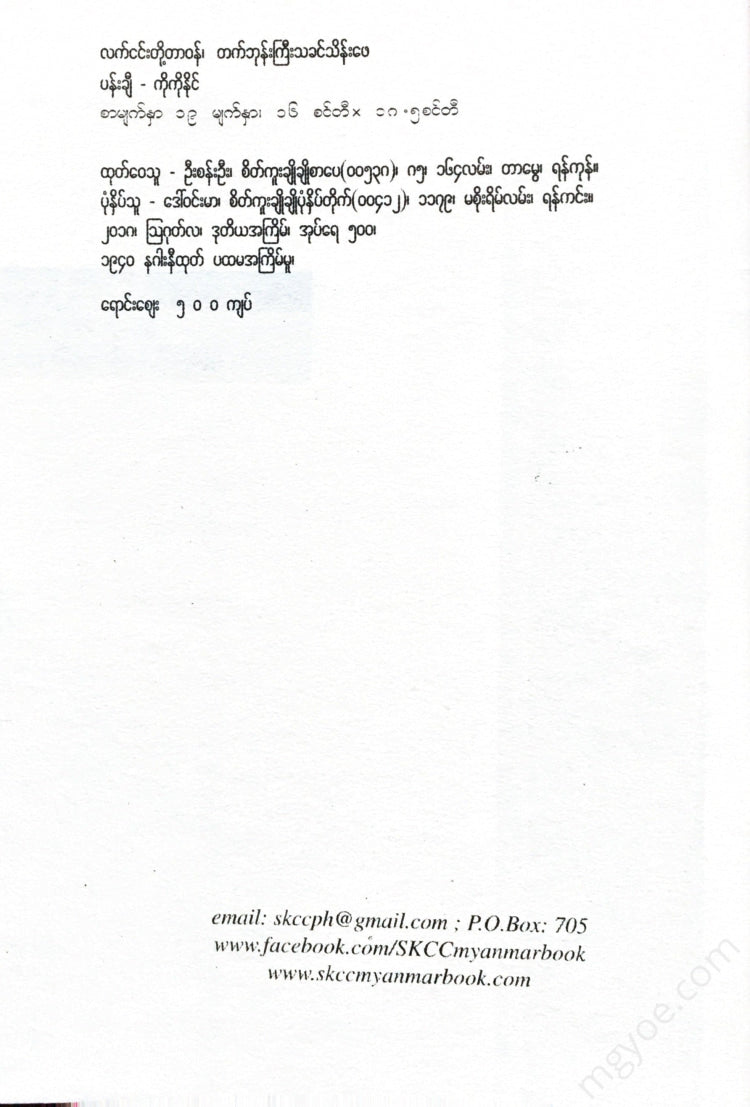 လက်ငင်းတို့တာဝန်၊ တက်ဘုန်းကြီးသခင်သိန်းဖေ
ပန်းချီ - ကိုကိုနိုင်
စာမျက်နှာ ၁၉ မျက်နှာ၊ ၁၆ စင်တီ× ၁၈.၅စင်တီ
ထုတ်ဝေသူ - ဦးစန်းဦး၊ စိတ်ကူးချိုချိုစာပေ(၀၀၅၃၈)၊ ၈၅၊ ၁၆၄လမ်း၊ တာမွေ၊ ရန်ကုန်။
ပုံနှိပ်သူ - ဒေါ်ဝင်းမာ၊ စိတ်ကူးချိုချိုပုံနှိပ်တိုက်(၀၀၄၁၂)၊ ၁၁၇၉၊ မစိုးရိမ်လမ်း၊ ရန်ကင်း။
၂၀၁၈၊ ဩဂုတ်လ၊ ဒုတိယအကြိမ်၊ အုပ်ရေ ၅၀၀၊
၁၉၄၀ နဂါးနီထုတ် ပထမအကြိမ်မူ၊
ရောင်းဈေး ၅ ၀ ၀ ကျပ်
email: skccph@gmail.com ; P.O.Box: 705
www.facebook.com/SKCCmyanmarbook
www.skccmyanmarbook.com
mgyoe.com